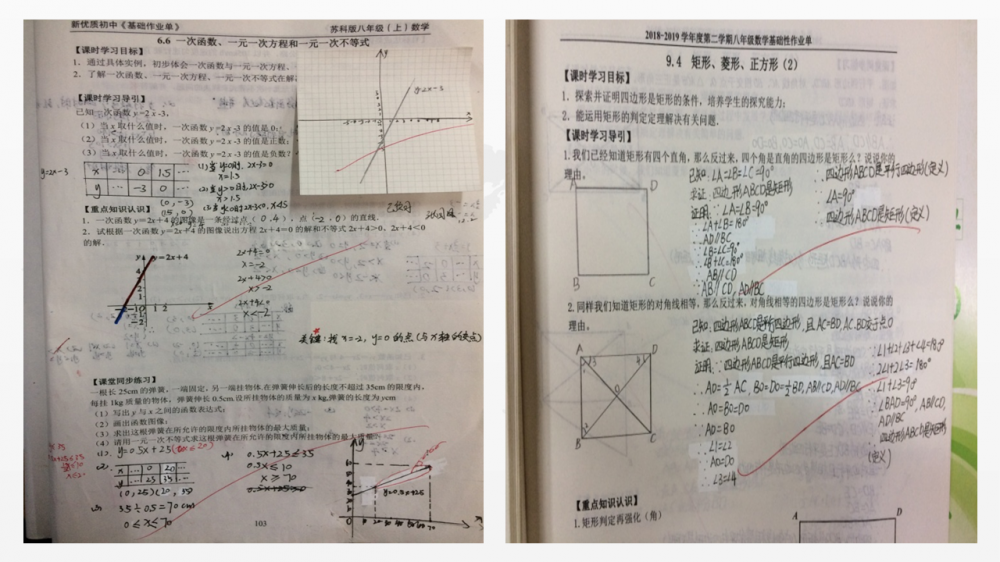 新优质初中《基础作业单》 苏科版八年级(上)数学
6.6 一次函数、一元一次方程和一元一次不等式
【课时学习目标】
1.通过具体实例,初步体会一次函数与一元一次方程、
2.了解一次函数、一元一次方程、一元一次不等式在解
【课时学习导引】
已知一次函数 y=2x-3,
(1)当 x 取什么值时,一次函数 y=2x-3 的值是 0;
(2)当 x 取什么值时,一次函数 y=2x-3 的值是正数;
(3)当 x 取什么值时,一次函数 y=2x-3 的值是负数?
y=2x-3
y=2x-3
x … 0 1.5 …
y … -3 0 …
(0,-3)
(1.5,0)
(1)当y=0时,2x-3=0
x=1.5
(2)当y>0时,2x-3>0
x>1.5
【重点知识认识】
1.一次函数 y=2x+4 的图像是一条经过点(0,4),点(-2,0)的直线.
2.试根据一次函数 y=2x+4 的图像说出方程 2x+4=0 的解和不等式 2x+4>0,2x+4<0
的解.
y=2x+4
2x+4=0
x=-2
2x+4>0
x>-2
2x+4<0
x<-2
关键:找 x=-2, y=0 的点(与x轴的交点)
【课堂同步练习】
一根长 25cm 的弹簧,一端固定,另一端挂物体.在弹簧伸长后的长度不超过 35cm 的限度内,
每挂 1kg 质量的物体,弹簧伸长 0.5cm.设所挂物体的质量为 x kg,弹簧的长度为 ycm
(1)写出 y 与 x 之间的函数表达式;
(2)画出函数图像;
(3)求出这根弹簧在所允许的限度内所挂物体的最大质量;
(4)请用一元一次不等式求这根弹簧在所允许的限度内所挂物体的最大质量.
(1) y=0.5x+25
(2) x … 0 20 …
y … 25 35 …
(0,25) (20,35)
(3) 35÷0.5=70cm
0≤x≤70
(4) 0.5x+25≤35
0.5x≤10
y=0.5x+25
103
2018-2019 学年度第二学期八年级数学基础性作业单
9.4 矩形、菱形、正方形(2)
【课时学习目标】
1.探索并证明四边形是矩形的条件,培养学生的探究能力;
2.能运用矩形的判定定理解决有关问题.
【课时学习导引】
1.我们已经知道矩形有四个直角,那么反过来,四个角是直角的四边形是矩形么?说说你的
理由.
A D
B C
已知:∠A=∠B=∠C=90°
求证:四边形ABCD是矩形
证明:∵∠A=∠B=90°
∴∠A+∠B=180°
∴AD∥BC
∵∠B=∠C=90°
∴∠B+∠C=180°
∴AB∥CD
∵AB∥CD, AD∥BC
∴四边形ABCD是平行四边形(定义)
∵∠A=90°
∴四边形ABCD是矩形(定义)
2.同样我们知道矩形的对角线相等,那么反过来,对角线相等的四边形是矩形么?说说你的
理由.
A D
O
B C
已知:四边形ABCD是平行四边形,且AC=BD,AC、BD交于点O
求证:四边形ABCD是矩形
证明:∵四边形ABCD是平行四边形,且AC=BD
∴AO=½AC, BO=DO=½BD, AB∥CD, AD∥BC
∴AO=BO=DO
∵AO=BO
∴∠1=∠2
∵AO=DO
∴∠3=∠4
∵∠1+∠2+∠3+∠4=180°
∴2∠1+2∠3=180°
∴∠1+∠3=90°
∴∠BAD=90°
∵AB∥CD,
AD∥BC
∴四边形ABCD是矩形
(定义)
【重点知识认识】
1.矩形判定再强化(角)
A D